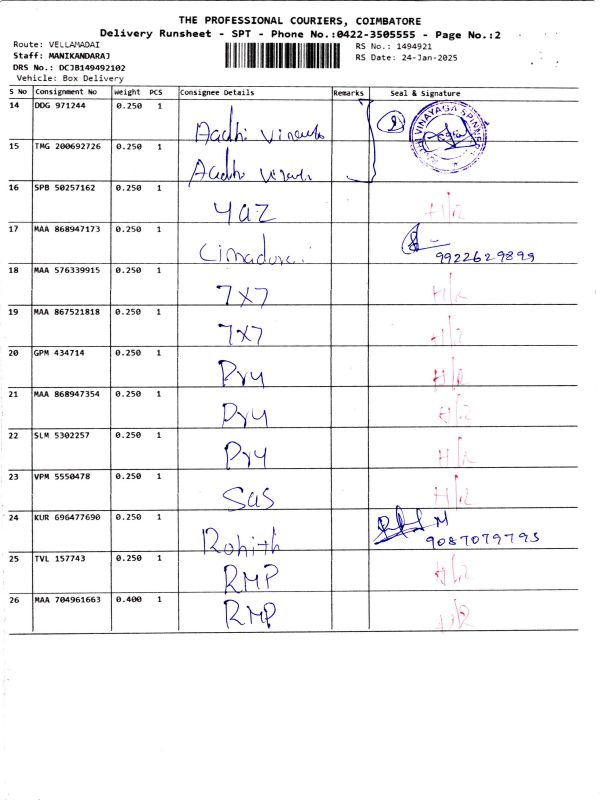 THE PROFESSIONAL COURIERS, COIMBATORE
Delivery Runsheet - SPT - Phone No.:0422-3505555 - Page No.:2
Route: VELLAMADAI
RS No.: 1494921
Staff: MANIKANDARAJ
RS Date: 24-Jan-2025
DRS No.: DCJB149492102
Vehicle: Box Delivery
S No Consignment No Weight PCS Consignee Details Remarks Seal & Signature
14 DDG 971244 0.250 1 Aadhi
VINAYAGA
15 TMG 200692726 0.250 1 Aadhi
16 SPB 50257162 0.250 1 YaZ H/R
17 MAA 868947173 0.250 1 Cimadurai 9922629899
18 MAA 576339915 0.250 1 7X7 H/R
19 MAA 867521818 0.250 1 7X7 H/R
20 GPM 434714 0.250 1 H/R
21 MAA 868947354 0.250 1 H/R
22 SLM 5302257 0.250 1 H/R
23 VPM 5550478 0.250 1 SaS H/R
24 KUR 696477690 0.250 1 Rohith M 9087079793
25 TVL 157743 0.250 1 RMP H/R
26 MAA 704961663 0.400 1 RMP H/R